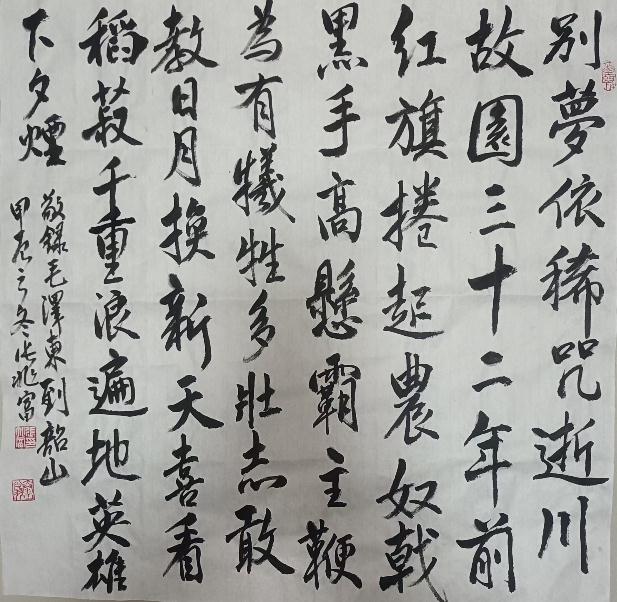 别夢依稀咒逝川
故園三十二年前
红旗捲起農奴戟
黑手高懸霸主鞭
為有犧牲多壮志敢
教日月换新天喜看
稻菽千重浪遍地英雄
下夕煙
敬録毛澤東到韶山
甲辰之冬张兆富